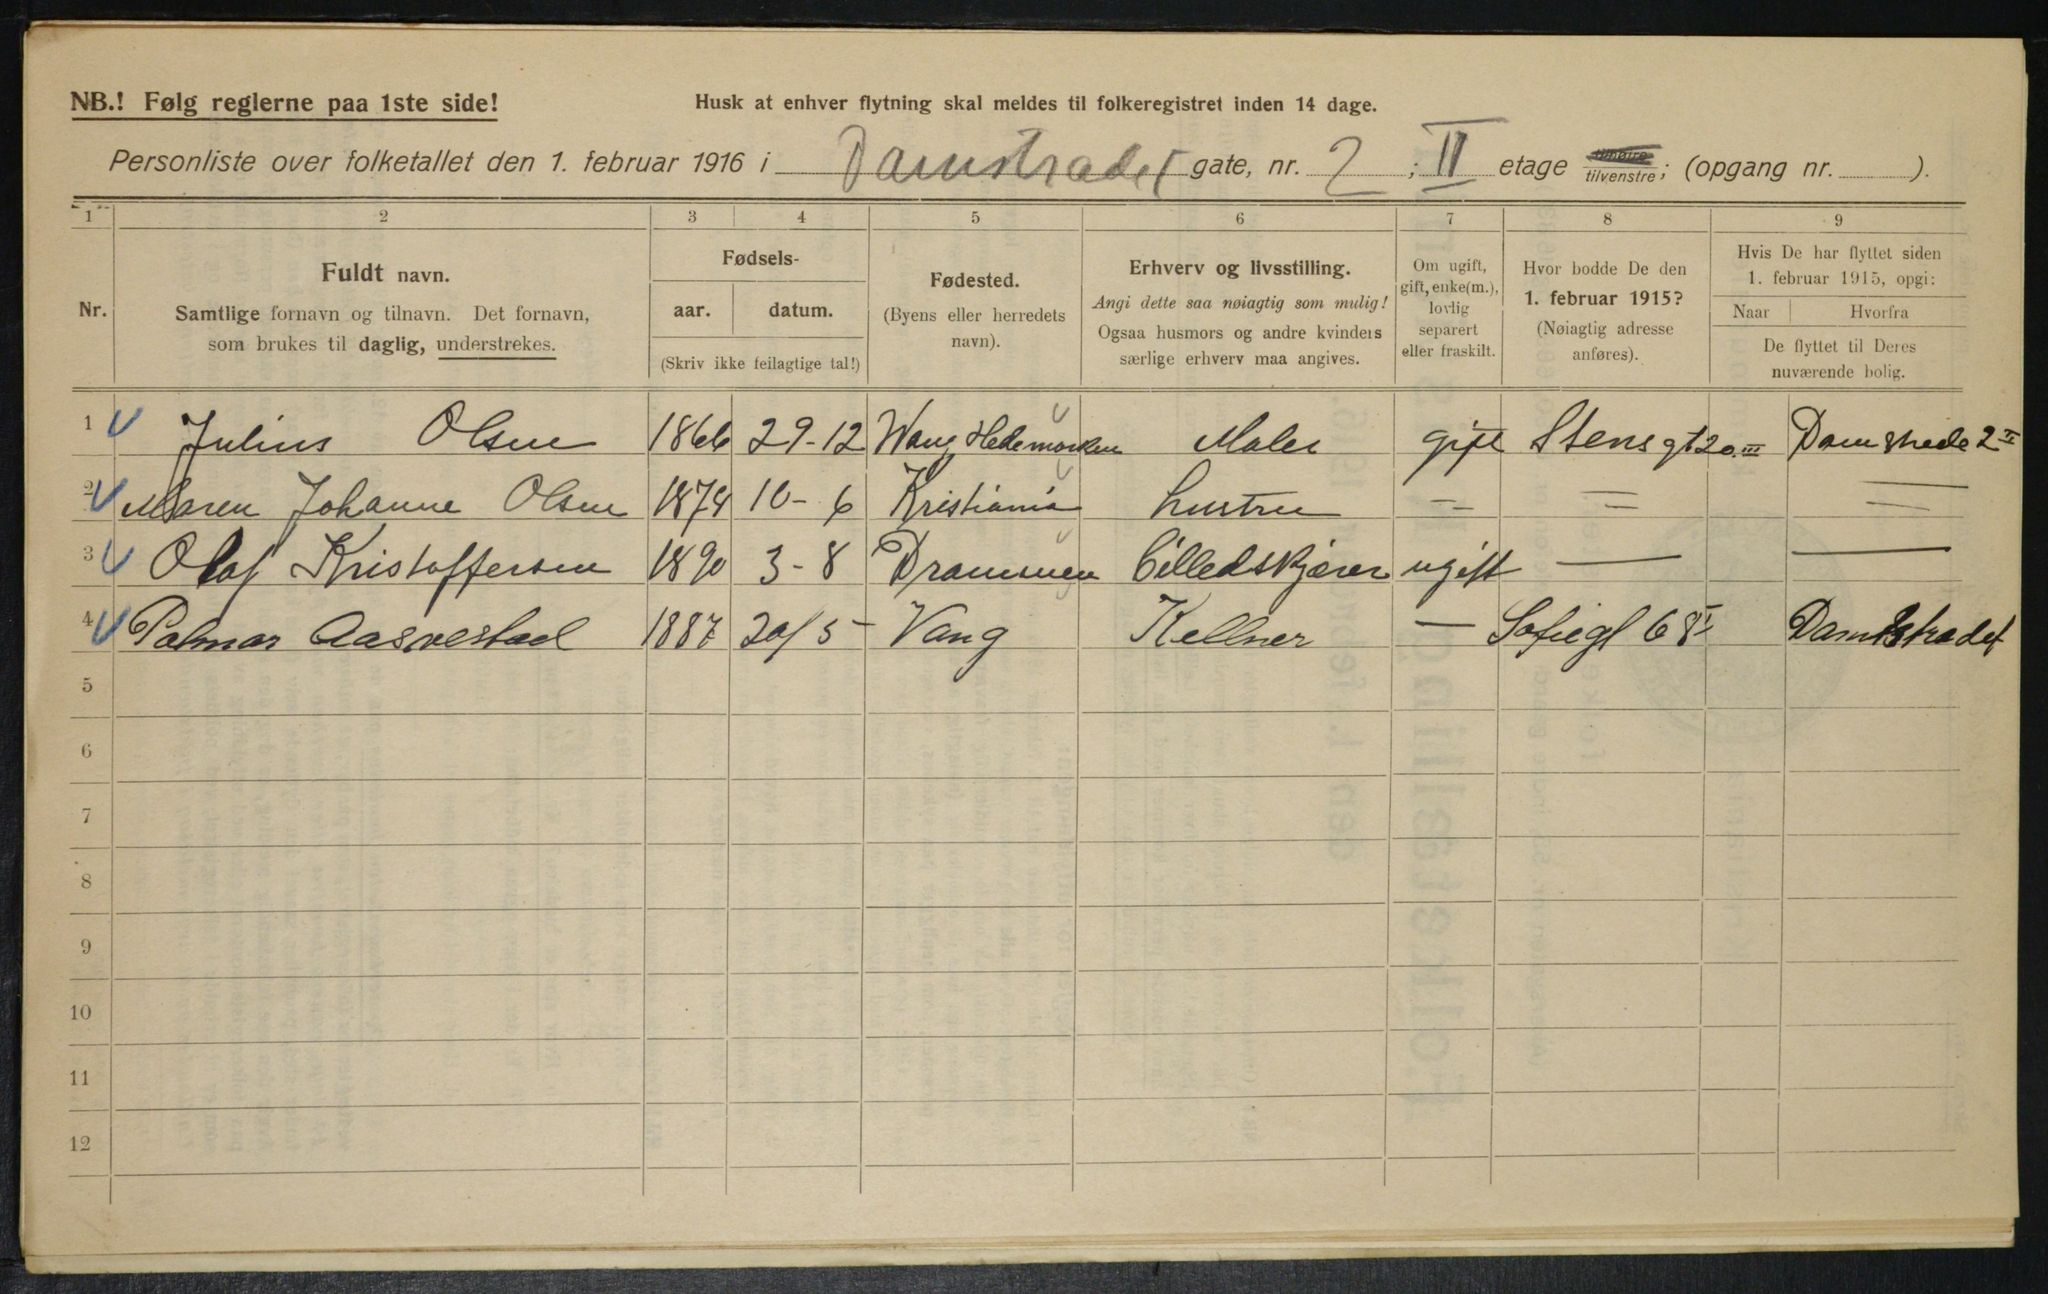 NB.! Følg reglerne paa 1ste side! Husk at enhver flytning skal meldes til folkeregistret inden 14 dage.
Personliste over folketallet den 1. februar 1916 i Damstrædet gate, nr. 2 ; II etage tilhøire tilvenstre; (opgang nr. ).
1 2 3 4 5 6 7 8 9
Nr.
Fuldt navn.
Samtlige fornavn og tilnavn. Det fornavn,
som brukes til daglig, understrekes.
Fødsels-
aar. datum.
(Skriv ikke feilagtige tal!)
Fødested.
(Byens eller herredets
navn).
Erhverv og livsstilling.
Angi dette saa nøiagtig som mulig!
Ogsaa husmors og andre kvinders
særlige erhverv maa angives.
Om ugift,
gift, enke(m.),
lovlig
separert
eller fraskilt.
Hvor bodde De den
1. februar 1915?
(Nøiagtig adresse
anføres).
Hvis De har flyttet siden
1. februar 1915, opgi:
Naar Hvorfra
De flyttet til Deres
nuværende bolig.
1 Julius Olsen 1866 29-12 Wang Hedemarken Maler gift Stensgt 20 III Damstrede 2 II
2 Maren Johanne Olsen 1874 10-6 Kristiania hustru – = =
3 Olaf Kristoffersen 1890 3-8 Drammen Billedskjærer ugift — —
4 Palmar Aasvestad 1887 20/5 - Vang Kellner — Sofiegt 68 I Damstrædet
5
6
7
8
9
10
11
12